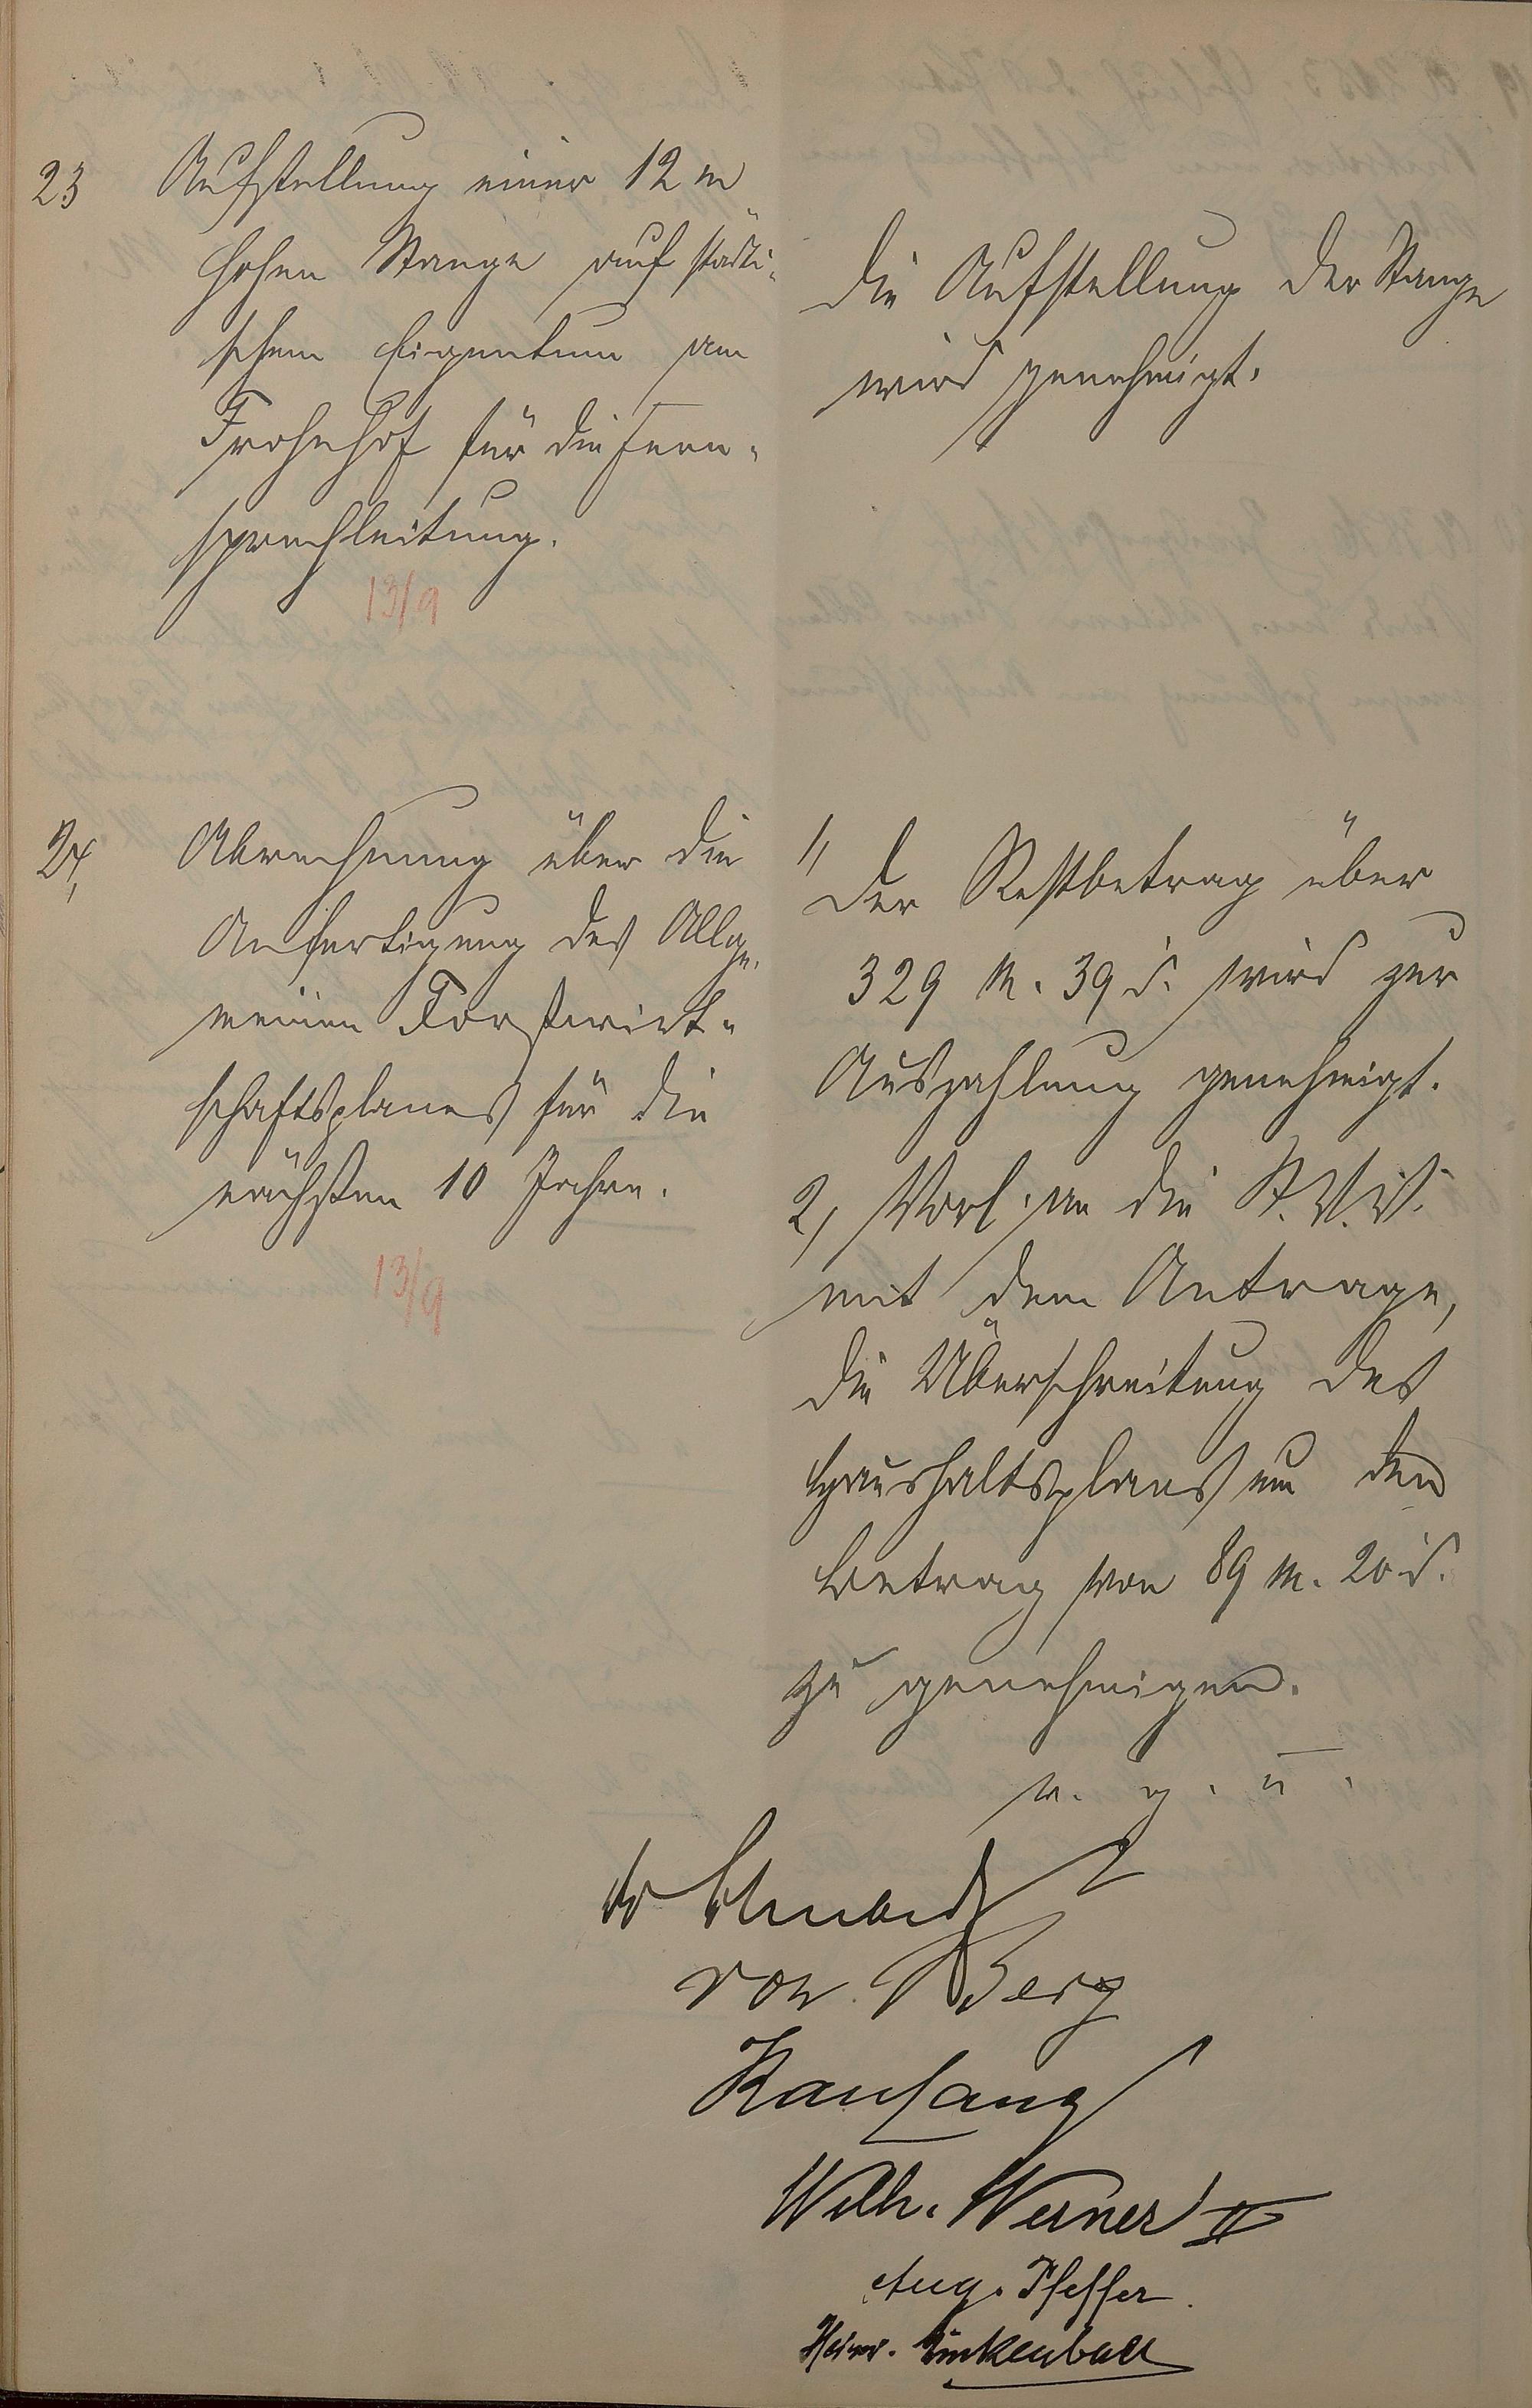 23 Aufstellung einer 12 m
hohen Stange auf städti-
schem Eigentum am
Frohnhof für die Fern-
sprechleitung.
13/9
Die Aufstellung der Stange
wird genehmigt.
24, Abrechnung über die
Anfertigung des Allge-
meinen Forstwirt-
schaftsplanes für die
nächsten 10 Jahre.
13/9
1, Der Restbetrag über
329 M. 39 d. wird zur
Auszahlung genehmigt.
2, Vorl. an die St. V. V.
mit dem Antrage,
die Überschreitung des
Haushaltsplans um den
Betrag von 89 M. 20 d.
zu genehmigen.
v. g. u.
von Berg
Wilh. Werner II
Aug. Pfeffer.
Heinr.